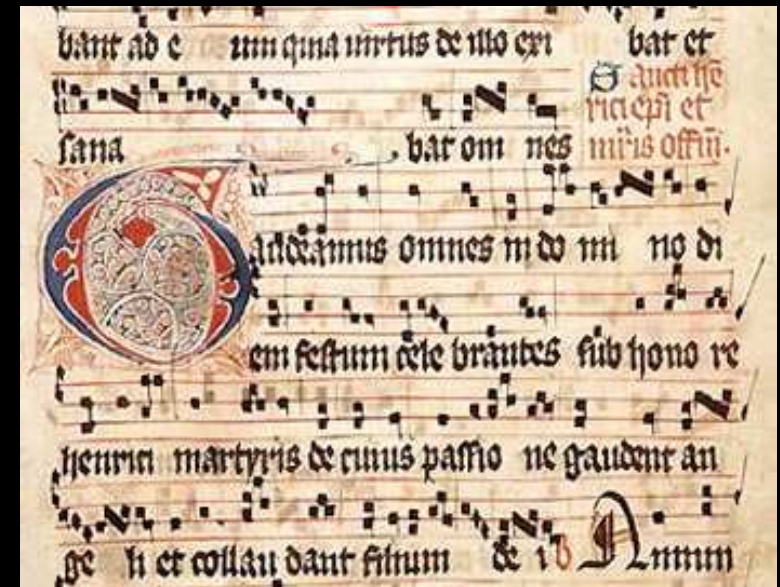 bant ad e um quia virtus de illo exi bat et
sana bat om nes
Sancti he
rici epi et
mris offm.
Gaudeamus omnes in do mi no di
em festum cele brantes sub hono re
henrici martyris de cuius passio ne gaudent an
ge li et collau dant filium de i